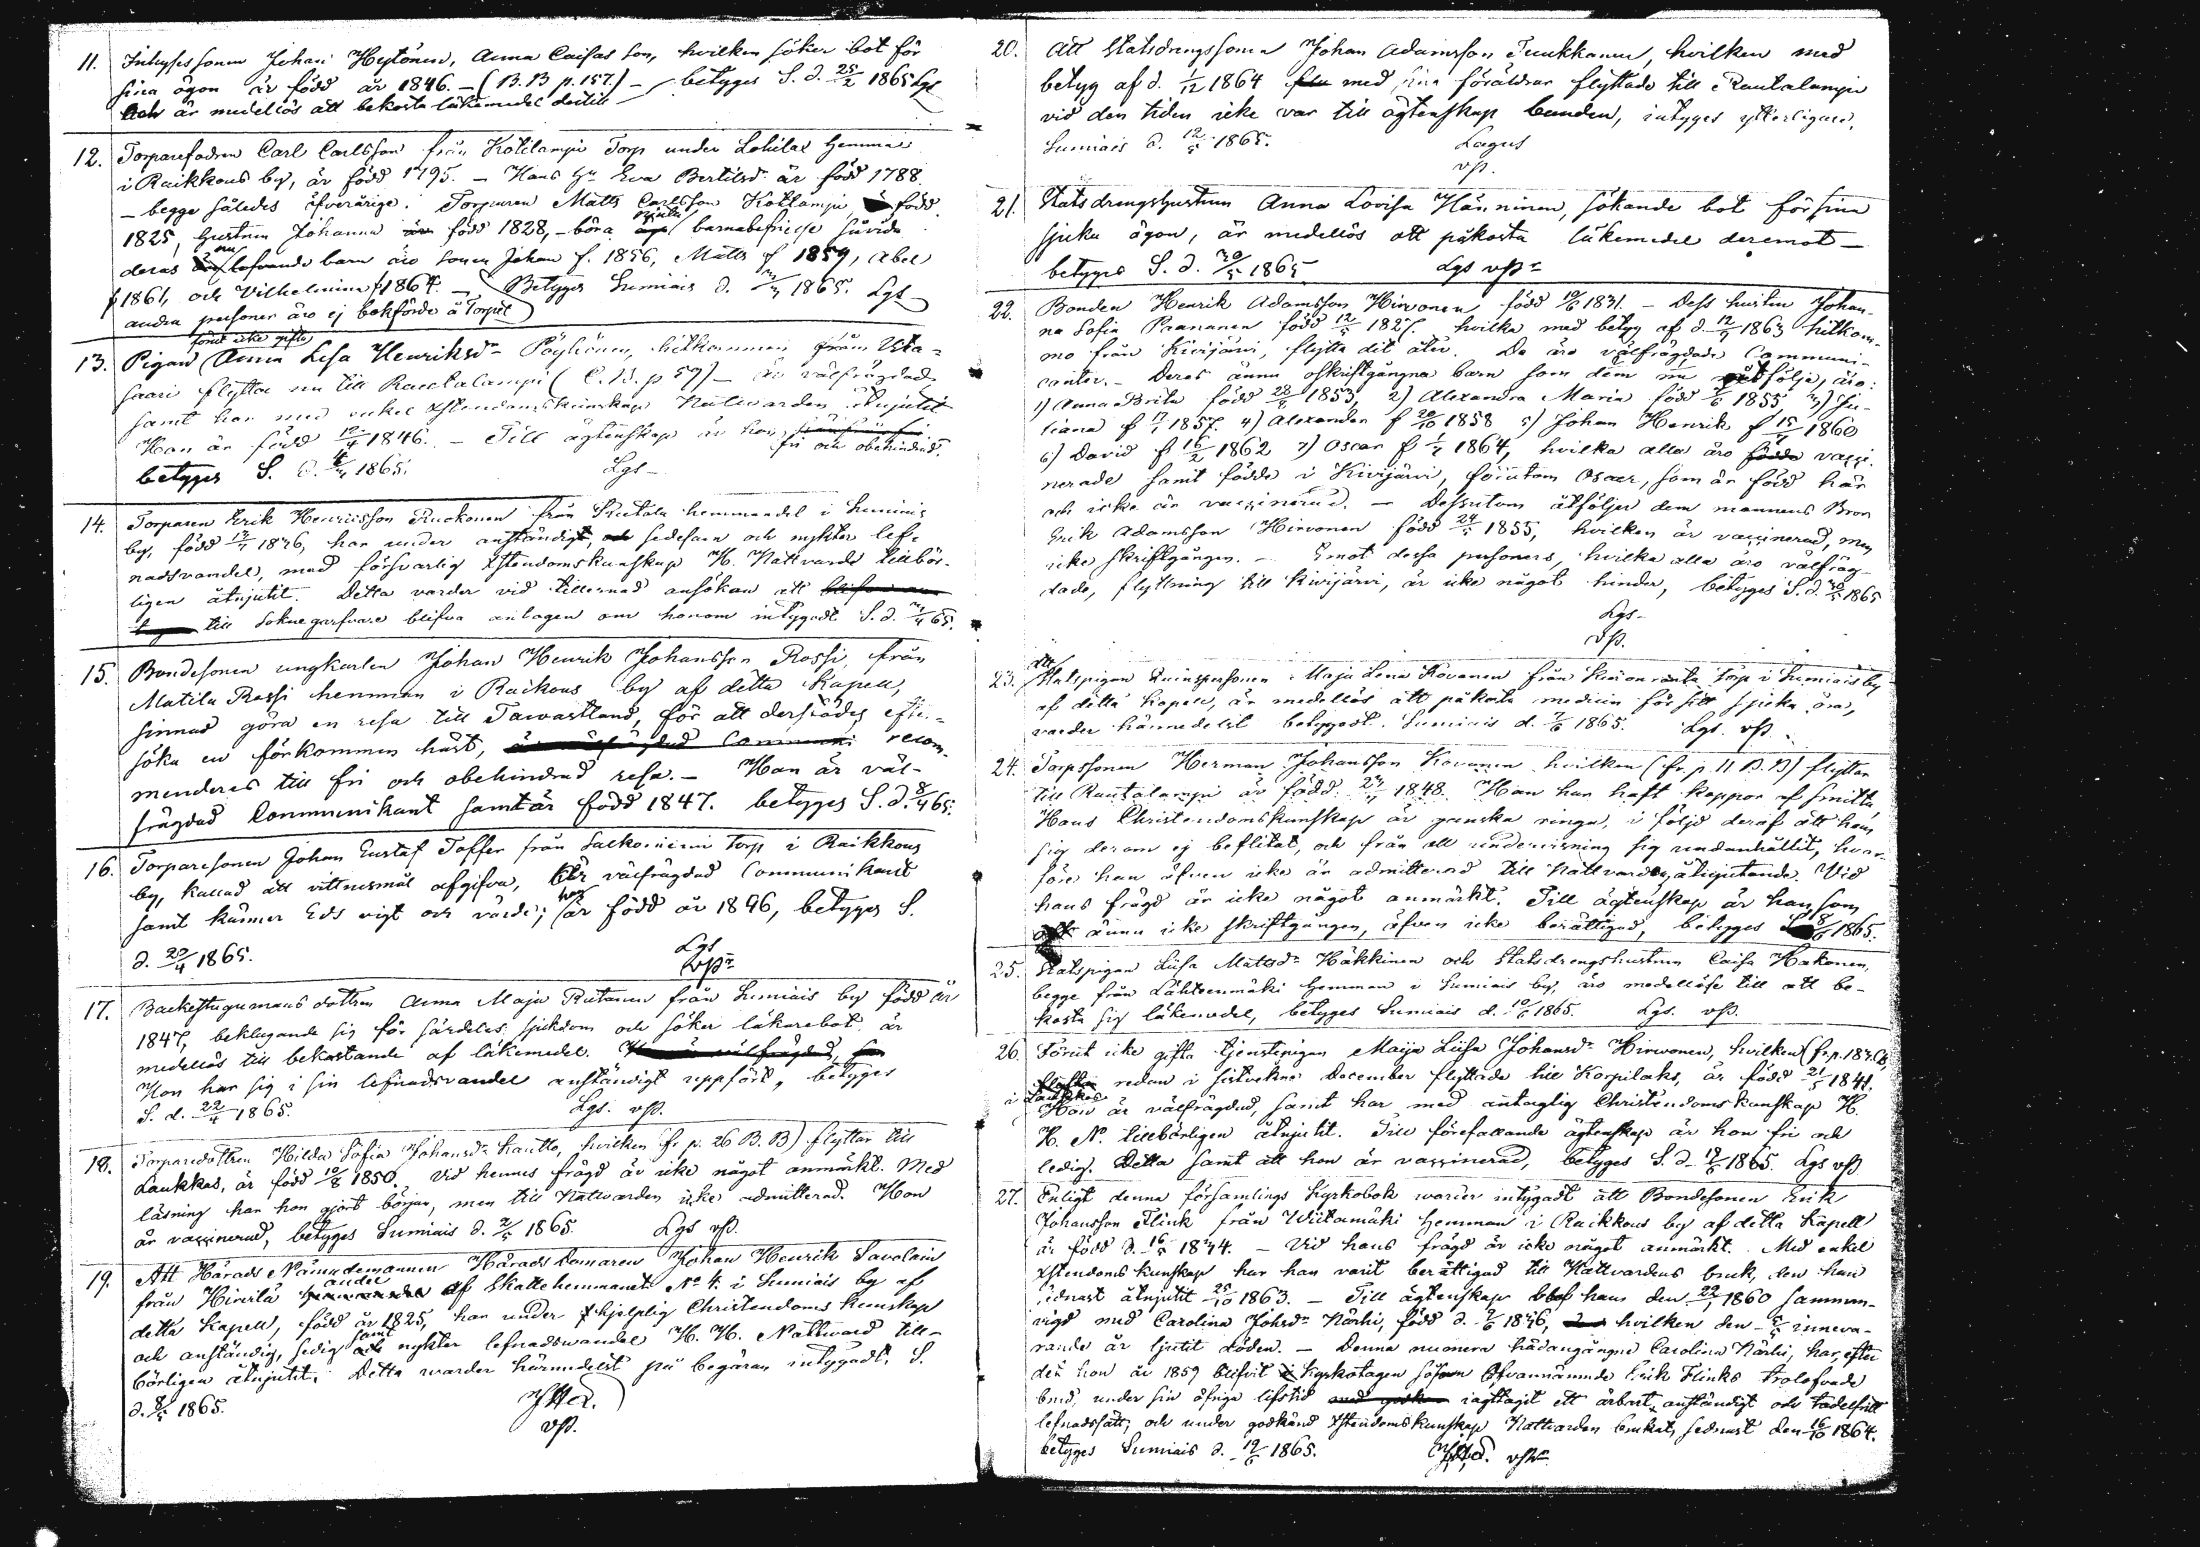 11. Inhysessonen Johan Heytönen, Anna Caisas son, hvilken söker bot för
sina ögon är född år 1846. – (B.B p. 157.) – betyges S. d. 25/2 1865 Lgs
och är medellös att bekosta läkemedel dertill
12. Torparefadren Carl Carlsson från Kotilampi Torp under Lohilax Hemman
i Raikkous by, är född 1795. – Hans Hu Eva Bertilsdr är född 1788
– begge således öfverårige. Torparen Matts Carlsson Kotilampi född
1825, hustrun Johanna född 1828, – böra njuta barnabefrielse såvida
deras nu lefvande barn äro sonen Johan f. 1856, Matts f 1859, Abel
f 1861, och Vilhelmina f 1864. – Betyges Sumiais d. 1865. Lgs
andra personer äro ej bokförde å Torpet
förut icke gifta
13. Pigan Anna Lisa Henriksdr Pöyhönen, hitkommen från Wita-
saari flyttar nu till Rautalampi (C.B. p 59) – är välfrägdad
samt har med enkel Xstendomskunskap Nattvarden åtnjutit
Hon är född 12/4 1846. – Till ägtenskap är hon
fri och obehindrad.
betyges S. d. 4/4 1865. Lgs –
14. Torparen Erik Henricsson Ruckonen från hemmanet i Sumiais
by, född 1826, har under anständigt, och sedesam och nykter lef-
nadsvandel, med försvarlig Xstendomskunskap H. Nattvard tillbör-
ligen åtnjutit. Detta varder vid tillernad ansökan att
till Soknegarfvare blifva antagen om honom intygadt S. d. 65.
15. Bondesonen ungkarlen Johan Henrik Johansson Rossi, från
Matila Rossi hemman i Raikous by af detta Kapell,
sinnad göra en resa till Tawastland, för att derstädes efter-
söka en förkommen häst, recom-
menderas till fri och obehindrad resa. – Han är väl-
frägdad Communikant samt är född 1847. betyges S. d. 8/4 65.
16. Torparesonen Johan Gustaf Toffer från Salkoniemi Torp i Raikkous
by, kallad att vittnesmål afgifva, är välfrägdad Communikant
samt känner Eds vigt och värde; är född år 1846, betyges S.
d. 20/4 1865. Lgs
vP.
17. Backstugumans dottren Anna Maja Rutanen från Sumiais by född år
1847, beklagande sig för särdeles sjukdom och söker läkarebot är
medellös till bekostande af läkemedel.
Hon har sig i sin lefnadsvandel anständigt uppfört, betyges
S. d. 22/4 1865. Lgs. vP.
18. Torparedottren Hilda Sofia Johansdr Kautto, hvilken (fr. p. 26 B.B) flyttar till
Laukkas, är född 10/8 1850. Vid hennes frägd är icke något anmärkt. Med
läsning har hon gjort början, men till Nattvarden icke admitterad. Hon
är vaccinerad, betyges Sumiais d. 2/5 1865. Lgs vP.
19. Att Härads Nämndemannen Härads Domaren Johan Henrik Savolain
från Hirvilä andel af Skattehemmanet No 4. i Sumiais by af
detta Kapell, född år 1825, har under hjelplig Christendoms kunskap
och anständig, sedig samt nykter lefnadswandel H. H. Nattward till-
börligen åtnjutit. Detta warder härmedelst på begäran intygadt. S.
d. 8/5 1865.
vP.
20. Att Statsdrengssonen Johan Adamsson Tuukkanen, hvilken med
betyg af d. 1/12 1864 med sina föräldrar flyttade till Rautalampi
vid den tiden icke var till ägtenskap bunden, intyges ytterligare.
Sumiais d. 12/5 1865. Lagus
vP.
21. Statsdrengshustrun Anna Lovisa Hänninen, sökande bot för sina
sjuka ögon, är medellös att påkosta läkemedel deremot –
betyges S. d. 30/5 1865 Lgs vP.
22. Bonden Henrik Adamsson Hirvonen född 1831. – Dess hustru Johan-
na Sofia Paananen född 12/5 1827. hvilka med betyg af d. 1863 hitkom-
mo från Kivijärvi, flytta dit åter. De äro välfrägdade Communi-
canter. – Deras ännu oskriftgångna barn som dem nu åtfölja, äro:
1) Anna Brita född 1853, 2) Alexandra Maria född 1855 3) Ju-
liana f 17/1 1857. 4) Alexander f 20/10 1858 5) Johan Henrik f 1860
6) David f 16/2 1862 7) Oscar f 1864, hvilka alla äro vacci-
nerade samt födde i Kivijärvi, förutom Oscar, som är född här
och icke är vaccinerad. – Dessutom åtföljer dem mannens Bror
Erik Adamsson Hirvonen född 1855, hvilken är vaccinerad, men
icke skriftgången. – Emot dessa personers, hvilka alla äro välfräg-
dade, flyttning till Kivijärvi, är icke något hinder, betyges S. d. 30/5 1865
Lgs –
vP.
23. Att Statspigan Qvinspersonen Maja Lena Kovanen från Torp i Sumiais by
af detta Kapell, är medellös att påkosta medicin för sitt sjuka öra,
varder härmedelst betygadt. Sumiais d. 1865. Lgs. vP.
24. Torpssonen Herman Johansson Kovanen hvilken (fr. p. 11 B.B) flyttar
till Rautalampi är född 1848. Han har haft koppor af smitta,
Hans Christendomskunskap är ganska ringa, i följd deraf att han
sig derom ej beflitat, och från all undervisning sig undanhållit, hvar-
före han äfven icke är admitterad till Nattvardens åtnjutande. Vid
hans frägd är icke något anmärkt. Till ägtenskap är han som
ännu icke skriftgången, äfven icke berättigad, betyges 1865.
25. Statspigan Liisa Mattsdr Häkkinen och Statsdrengshustrun Caisa Hakonen,
begge från Lähteenmäki Hemman i Sumiais by, äro medellöse till att be-
kosta sig läkemedel, betyges Sumiais d. 10/6 1865. Lgs. vP.
26. Förut icke gifta tjenstepigan Maija Liisa Johansdr Hirwonen, hvilken (fr. p. 187.
redan i sistvekne December flyttade till Korpilaks, är född 21/5 1841.
i Laukkas
Hon är välfrägdad, samt har med antaglig Christendoms kunskap H.
H. N. tillbörligen åtnjutit. Till förefallande ägtenskap är hon fri och
ledig. Detta samt att hon är vaccinerad, betyges S. d. 18/6 1865. Lgs vP
27. Enligt denna församlings Kyrkobok warder intygadt att Bondesonen Erik
Johansson Flink från Wiitamäki Hemman i Raikkous by af detta Kapell
är född d. 16/5 1844. – Vid hans frägd är icke något anmärkt. Med enkel
Xstendoms kunskap har han varit berättigad till Nattvardens bruk, den han
sednast åtnjutit 25/10 1863. – Till ägtenskap blef hans den 22/1 1860 samman-
vigd med Carolina Johsdr Närhi, född d. 1836, hvilken den inneva-
rande år ljutit döden. – Denna numera hädangångne Carolina Närhi, har, efter
det hon år 1859 blifvit Kyrkotagen såsom ofvannämnde Erik Flinks trolofvade
brud, under sin öfriga lifstid iagttagit ett ärbart, anständigt och tadelfritt
lefnadssätt, och under godkänd Xstendomskunskap Nattvarden brukat, sednast den 16/10 1864.
betyges Sumiais d. 19/6 1865.